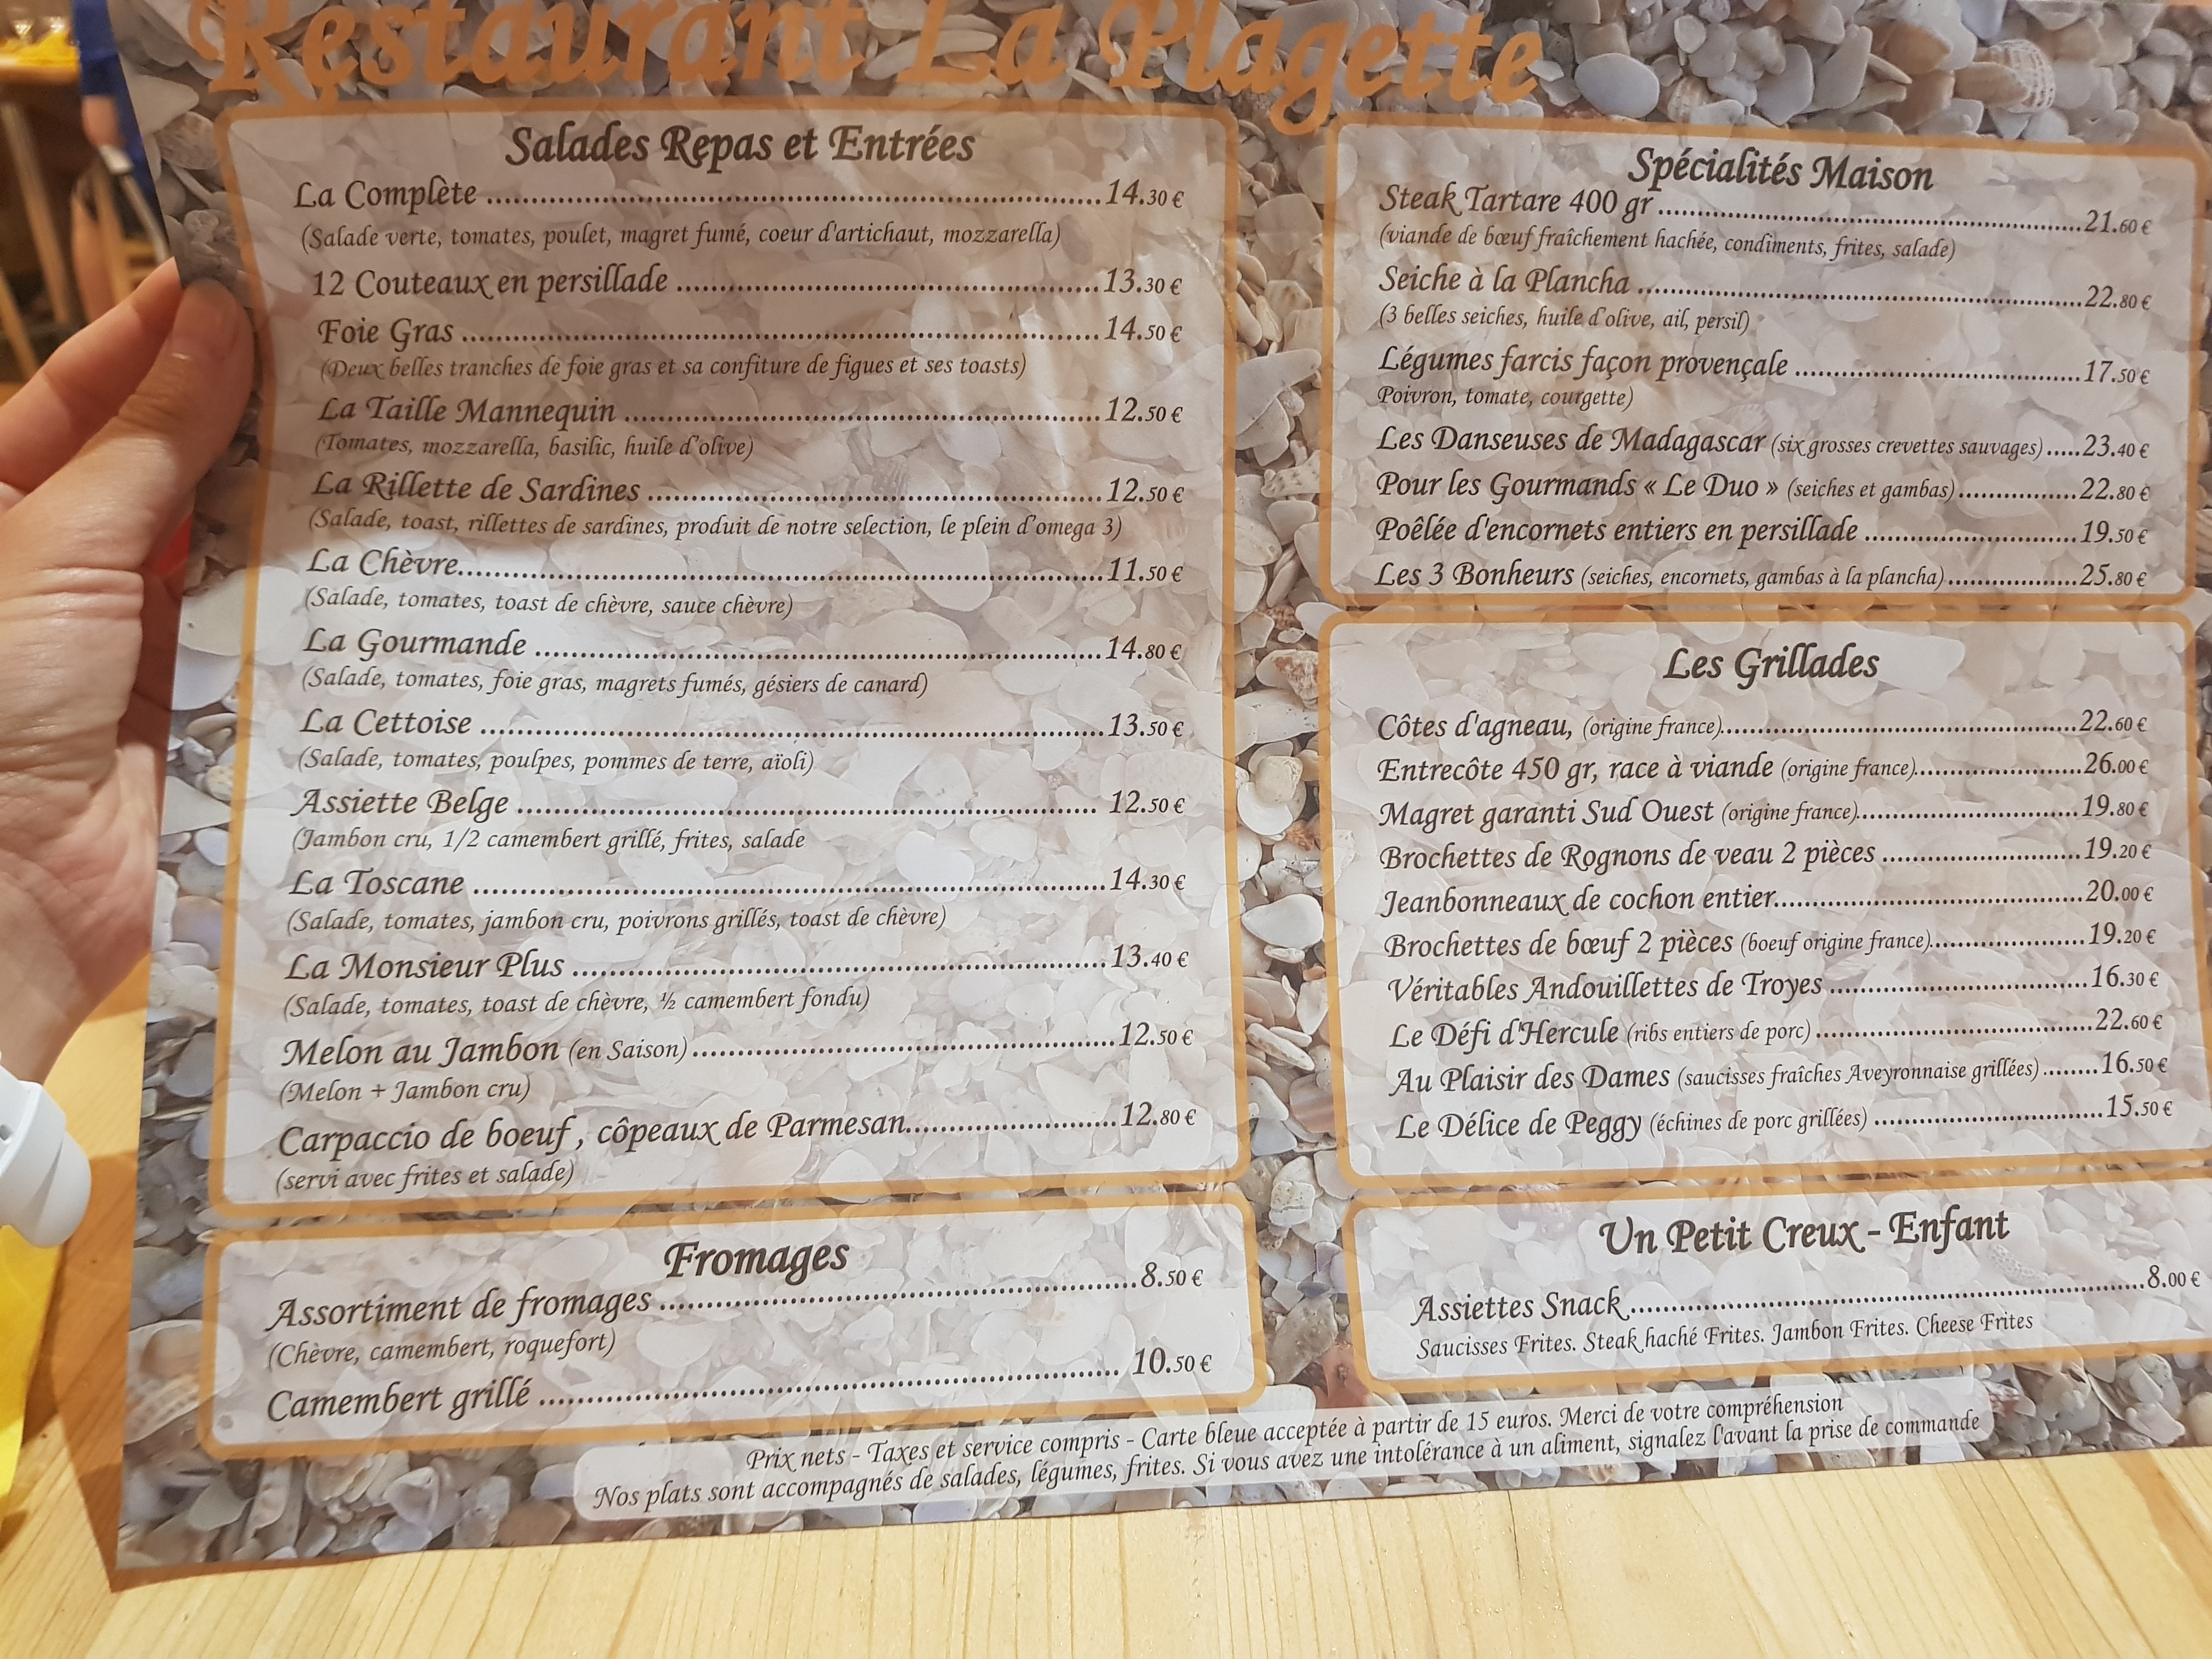 Restaurant La Plagette
Salades Repas et Entrées
La Complète ........ 14.30 €
(Salade verte, tomates, poulet, magret fumé, coeur d'artichaut, mozzarella)
12 Couteaux en persillade ........ 13.30 €
Foie Gras ........ 14.50 €
(Deux belles tranches de foie gras et sa confiture de figues et ses toasts)
La Taille Mannequin ........ 12.50 €
(Tomates, mozzarella, basilic, huile d'olive)
La Rillette de Sardines ........ 12.50 €
(Salade, toast, rillettes de sardines, produit de notre selection, le plein d'omega 3)
La Chèvre ........ 11.50 €
(Salade, tomates, toast de chèvre, sauce chèvre)
La Gourmande ........ 14.80 €
(Salade, tomates, foie gras, magrets fumés, gésiers de canard)
La Cettoise ........ 13.50 €
(Salade, tomates, poulpes, pommes de terre, aïoli)
Assiette Belge ........ 12.50 €
(Jambon cru, 1/2 camembert grillé, frites, salade
La Toscane ........ 14.30 €
(Salade, tomates, jambon cru, poivrons grillés, toast de chèvre)
La Monsieur Plus ........ 13.40 €
(Salade, tomates, toast de chèvre, ½ camembert fondu)
Melon au Jambon (en Saison) ........ 12.50 €
(Melon + Jambon cru)
Carpaccio de boeuf , côpeaux de Parmesan ........ 12.80 €
(servi avec frites et salade)
Fromages
Assortiment de fromages ........ 8.50 €
(Chèvre, camembert, roquefort)
Camembert grillé ........ 10.50 €
Spécialités Maison
Steak Tartare 400 gr ........ 21.60 €
(viande de bœuf fraîchement hachée, condiments, frites, salade)
Seiche à la Plancha ........ 22.80 €
(3 belles seiches, huile d'olive, ail, persil)
Légumes farcis façon provençale ........ 17.50 €
Poivron, tomate, courgette)
Les Danseuses de Madagascar (six grosses crevettes sauvages) ..... 23.40 €
Pour les Gourmands « Le Duo » (seiches et gambas) ........ 22.80 €
Poêlée d'encornets entiers en persillade ........ 19.50 €
Les 3 Bonheurs (seiches, encornets, gambas à la plancha) ........ 25.80 €
Les Grillades
Côtes d'agneau, (origine france) ........ 22.60 €
Entrecôte 450 gr, race à viande (origine france) ........ 26.00 €
Magret garanti Sud Ouest (origine france) ........ 19.80 €
Brochettes de Rognons de veau 2 pièces ........ 19.20 €
Jeanbonneaux de cochon entier ........ 20.00 €
Brochettes de bœuf 2 pièces (boeuf origine france) ........ 19.20 €
Véritables Andouillettes de Troyes ........ 16.30 €
Le Défi d'Hercule (ribs entiers de porc) ........ 22.60 €
Au Plaisir des Dames (saucisses fraîches Aveyronnaise grillées) ........ 16.50 €
Le Délice de Peggy (échines de porc grillées) ........ 15.50 €
Un Petit Creux - Enfant
Assiettes Snack ........ 8.00 €
Saucisses Frites. Steak haché Frites. Jambon Frites. Cheese Frites
Prix nets - Taxes et service compris - Carte bleue acceptée à partir de 15 euros. Merci de votre compréhension
Nos plats sont accompagnés de salades, légumes, frites. Si vous avez une intolérance à un aliment, signalez l'avant la prise de commande